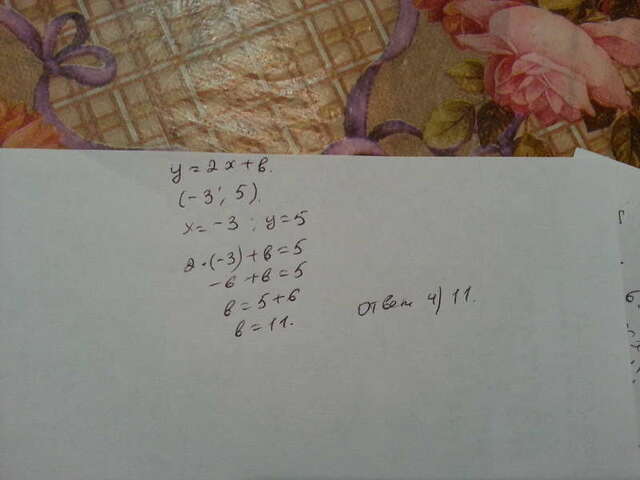 y = 2x + в.
(-3; 5).
x = -3; y = 5
2·(-3) + в = 5
-6 + в = 5
в = 5 + 6
в = 11.
Ответ 4) 11.